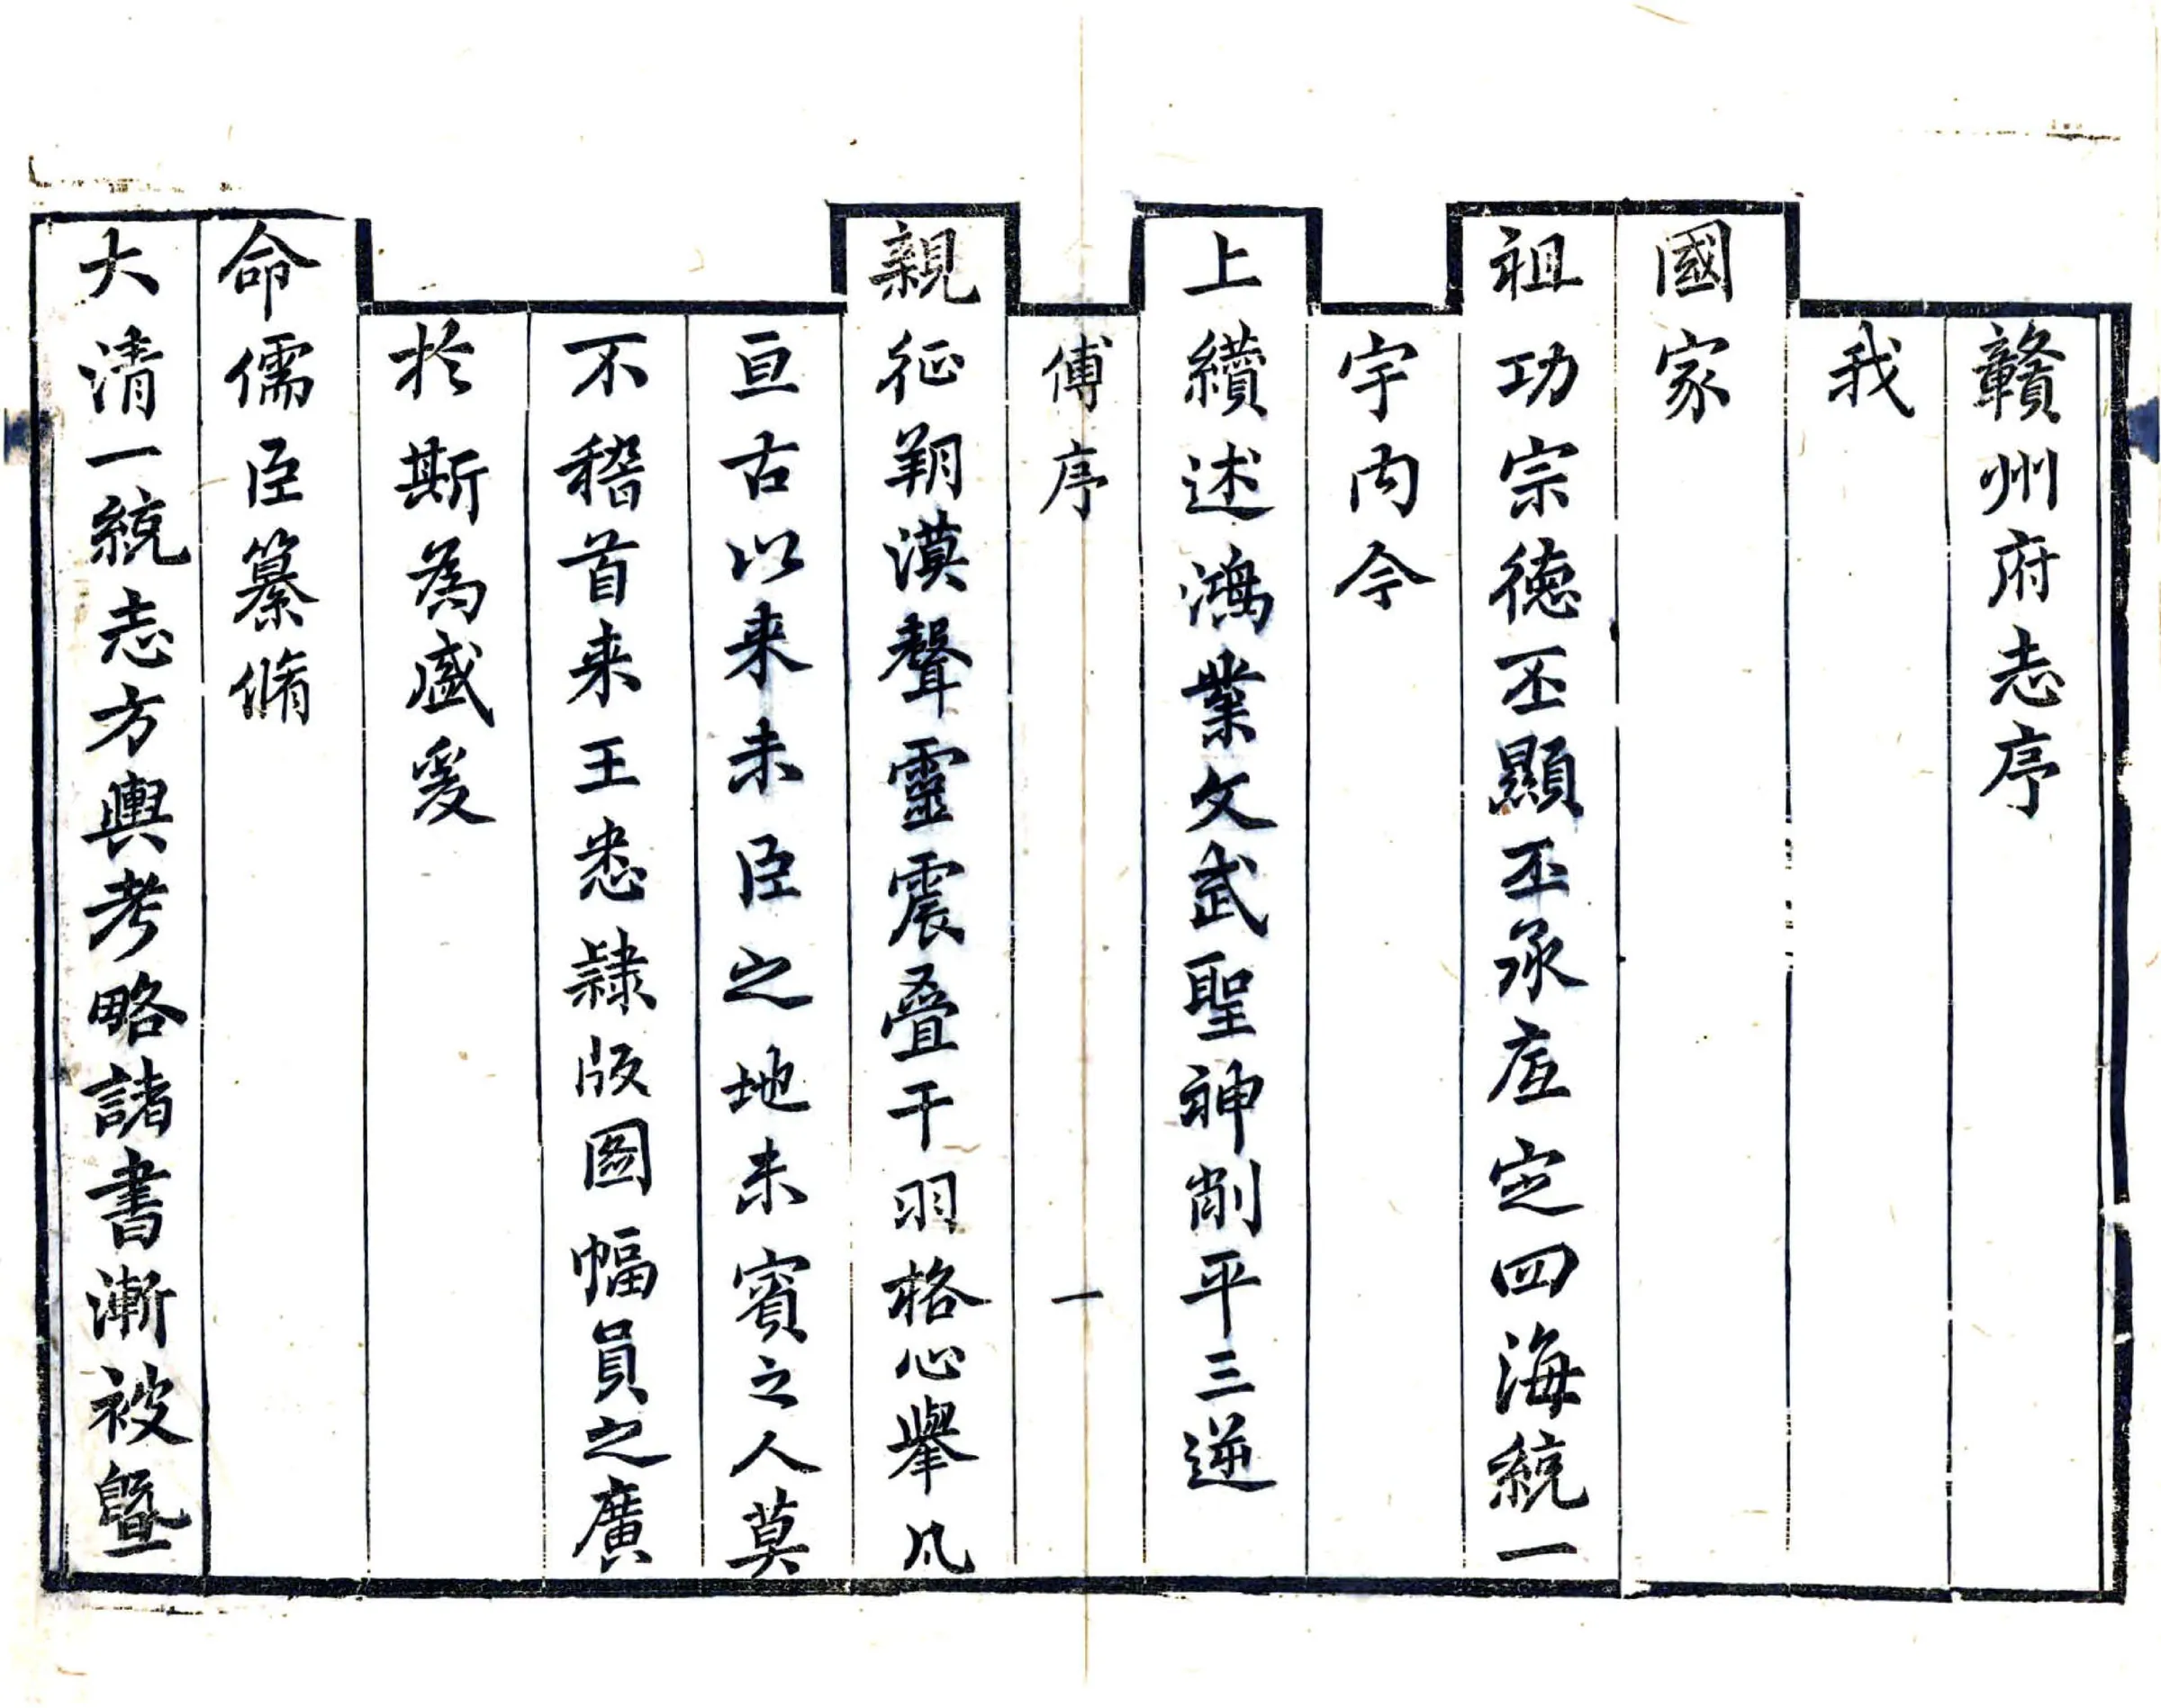 贛州府志序
我
國家
祖功宗德丕顯丕承底定四海統一
宇內今
上纘述鴻業文武聖神削平三逆
傅序
一
親征朔漠聲靈震疊干羽格心舉凡
亘古以来未臣之地未賓之人莫
不稽首来王悉隸版圖幅員之廣
於斯為盛爰
命儒臣纂脩
大清一統志方輿考略諸書漸被曁